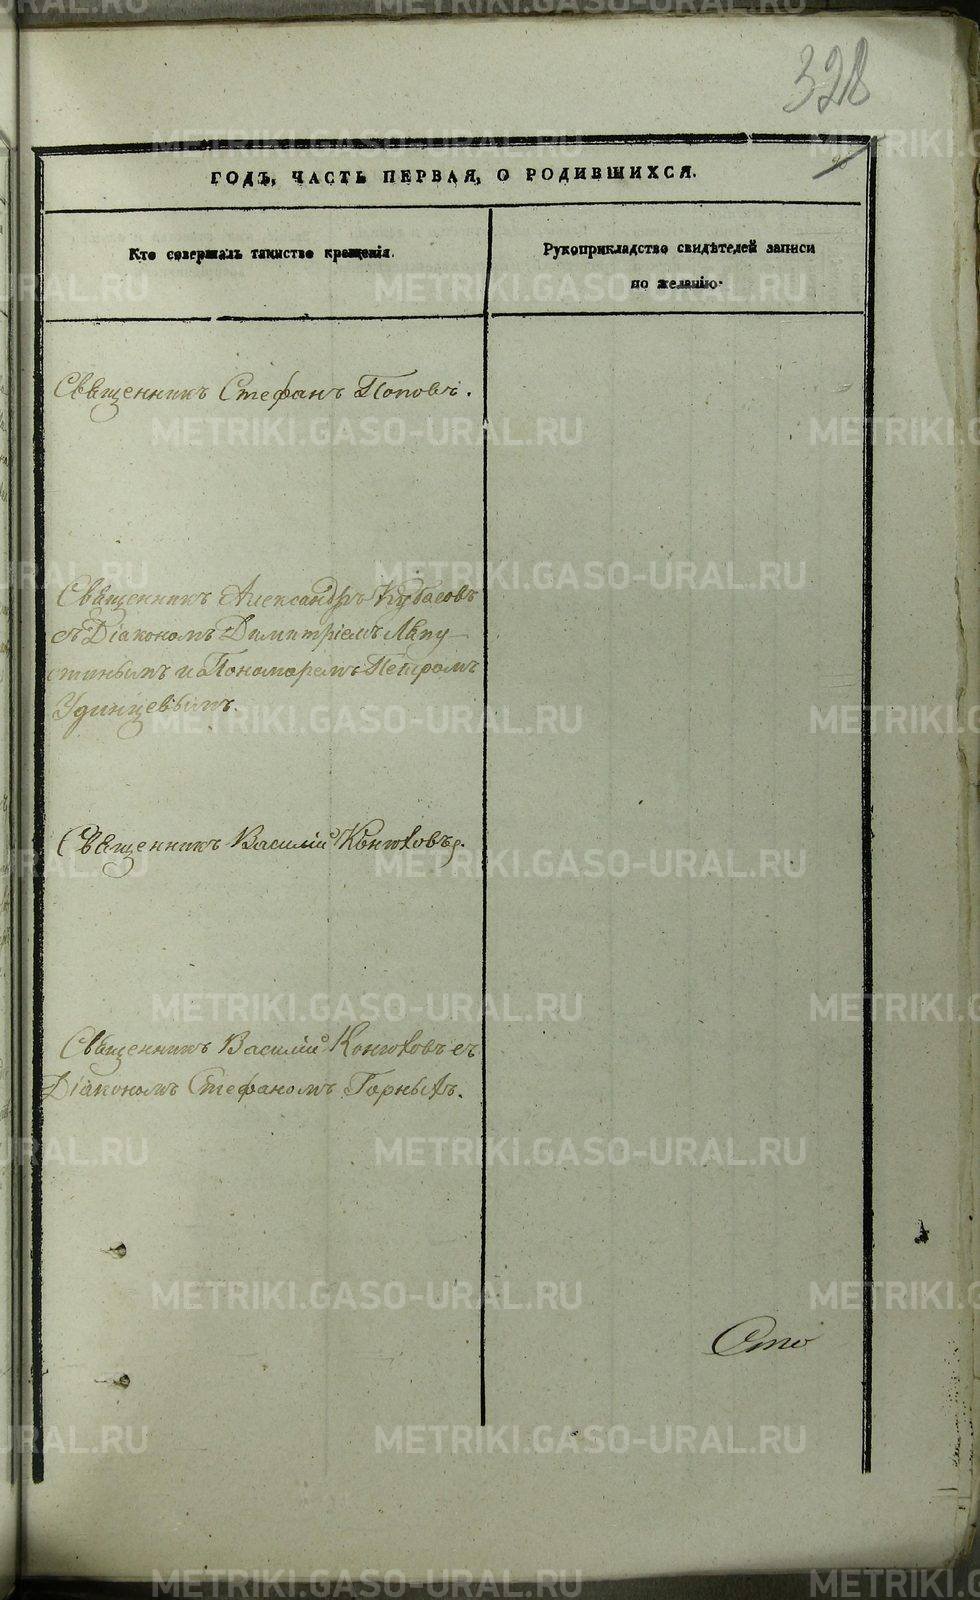 328
ГОДЪ, ЧАСТЬ ПЕРВАЯ, О РОДИВШИХСЯ.
Кто совершалъ таинство крещенія.
Рукоприкладство свидѣтелей записи
по желанію.
Священникъ Стефанъ Поповъ.
Священникъ Александръ Кубасовъ
съ Діакономъ Димитріемъ Лапу
стинымъ и Пономаремъ Петромъ
Удинцевымъ.
Священникъ Василій Конюховъ.
Священникъ Василій Конюховъ съ
Діакономъ Стефаномъ Горныхъ.
METRIKI.GASO-URAL.RU